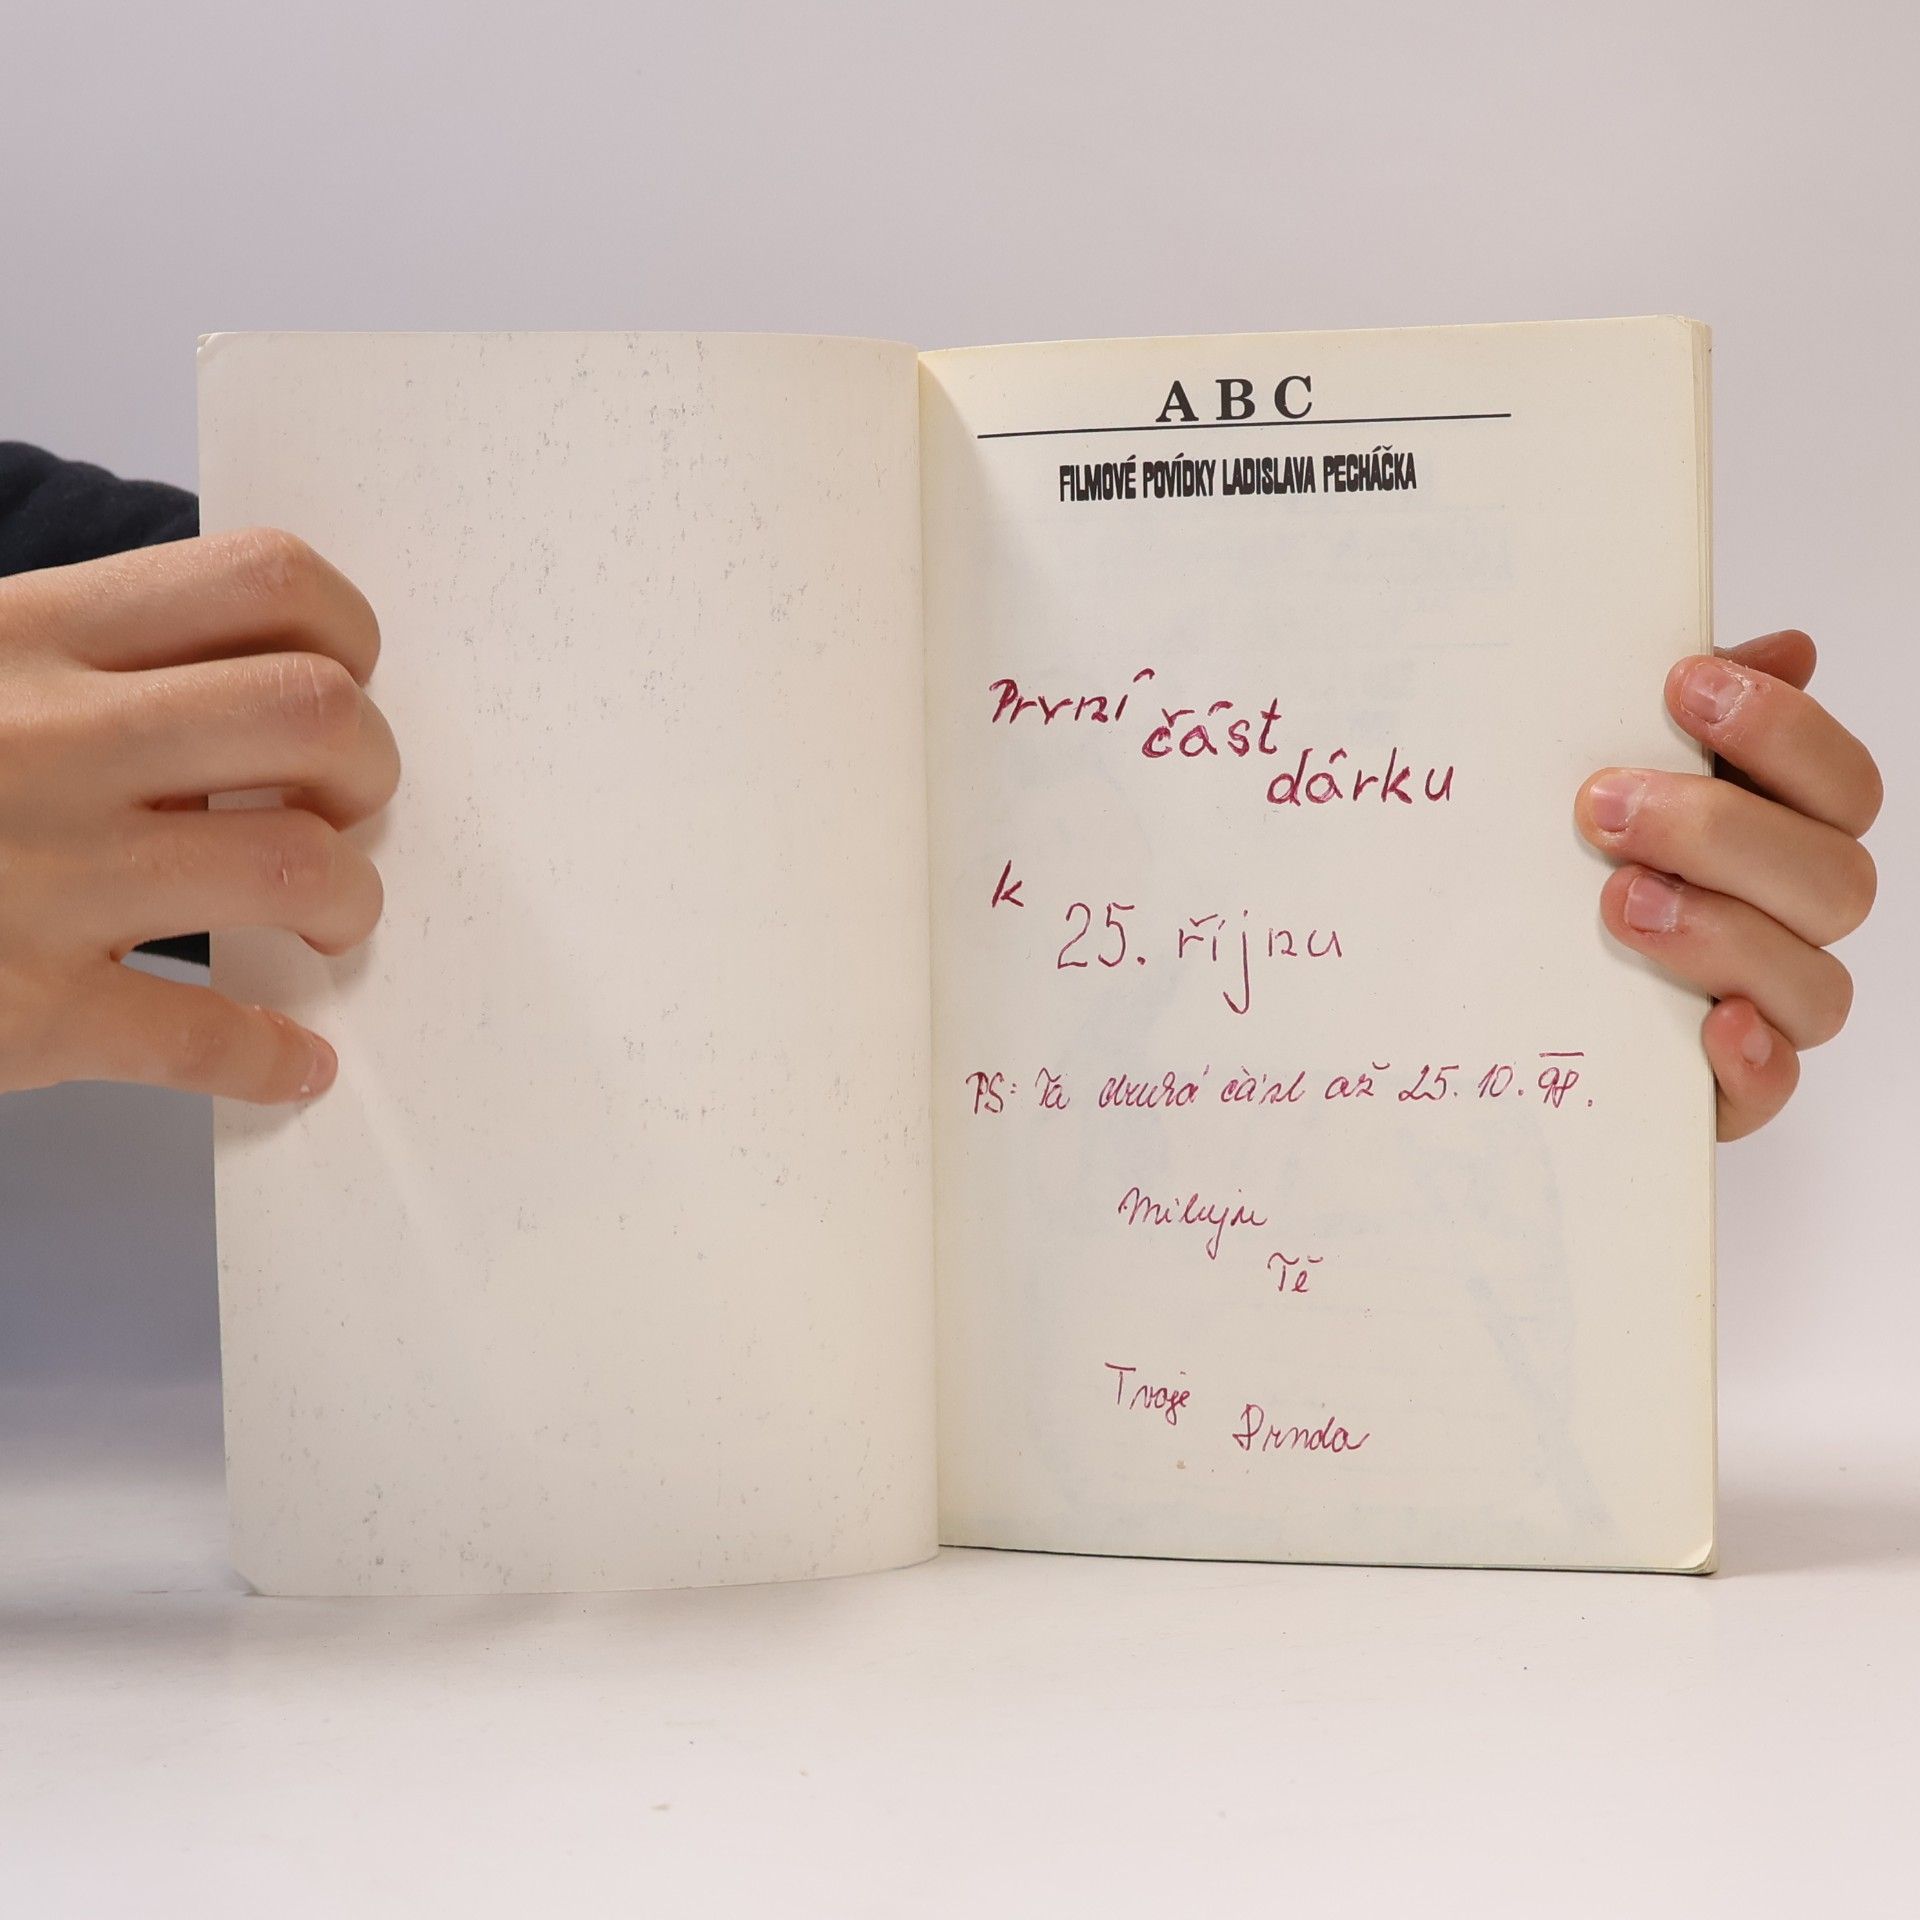 ABC
FILMOVÉ POVÍDKY LADISLAVA PECHÁČKA
První
část
dárku
k
25. říjnu
PS: Ta druhá část až 25. 10. 98.
Miluju
Tě
Tvoje
Drnda